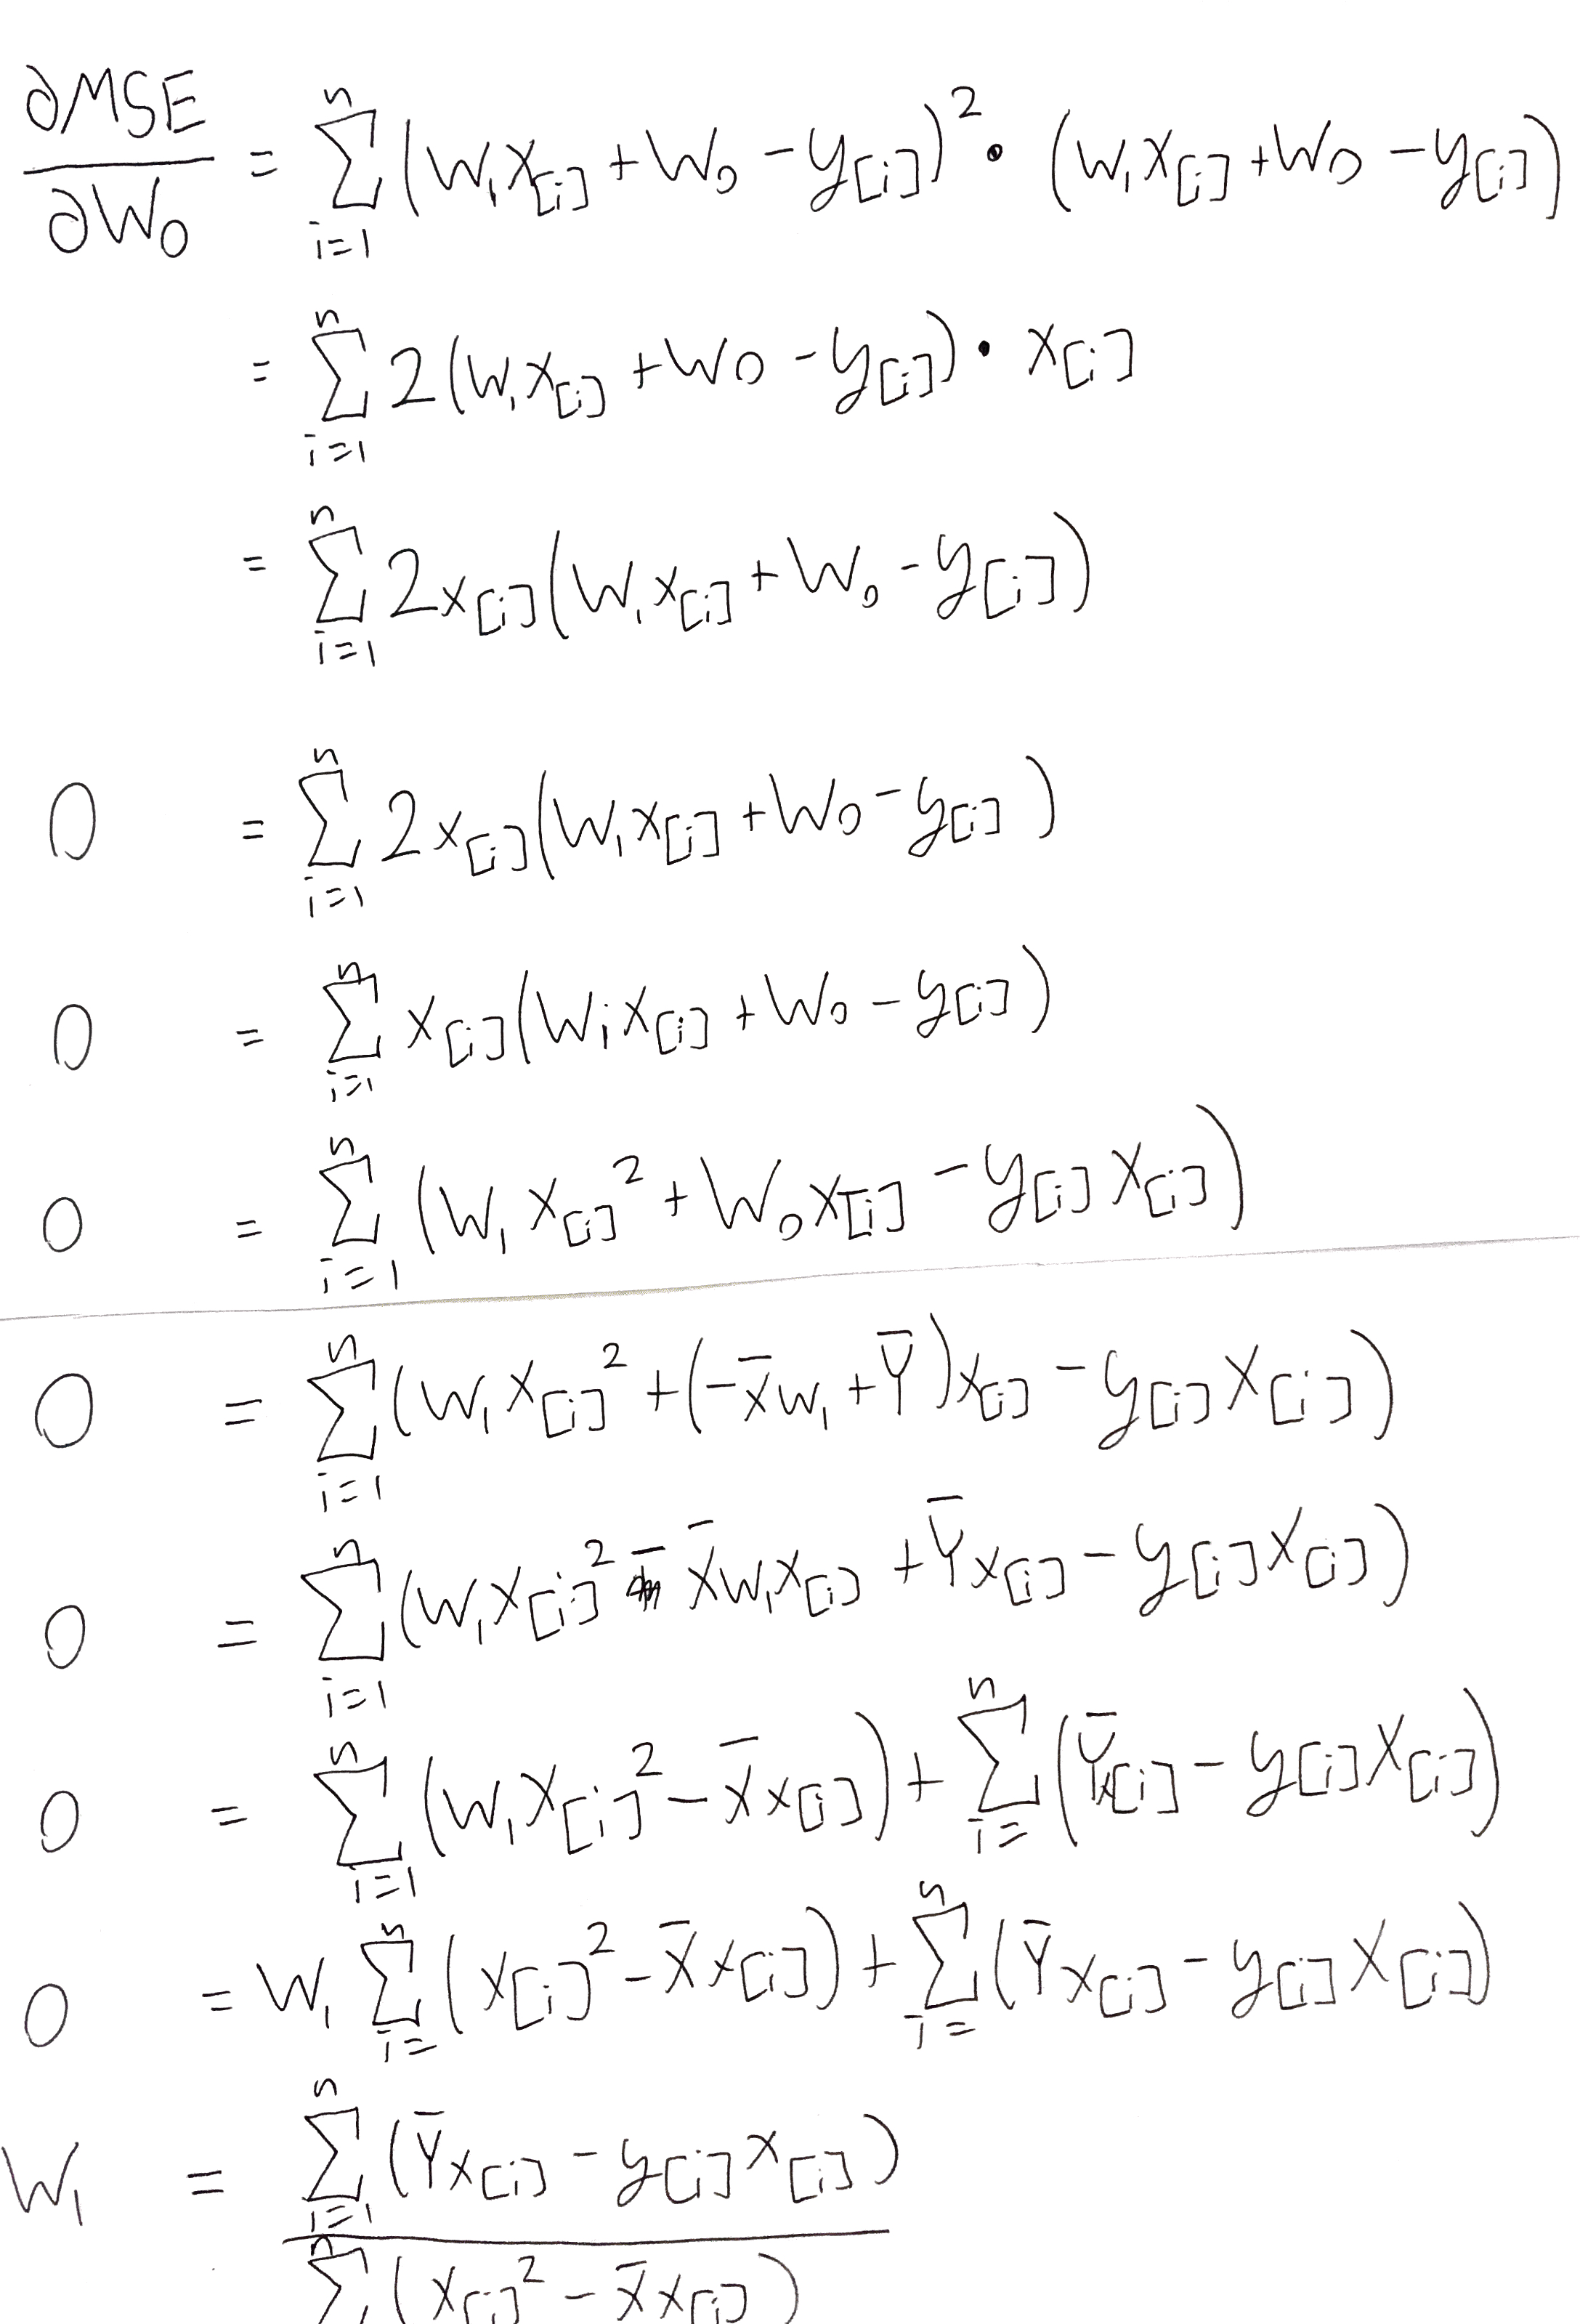 ∂MSE/∂W₀ = Σᵢ₌₁ⁿ (W₁X[i] + W₀ − y[i])² • (W₁X[i] + W₀ − y[i])
= Σᵢ₌₁ⁿ 2(W₁X[i] + W₀ − y[i]) • X[i]
= Σᵢ₌₁ⁿ 2x[i](W₁x[i] + W₀ − y[i])
0 = Σᵢ₌₁ⁿ 2x[i](W₁x[i] + W₀ − y[i])
0 = Σᵢ₌₁ⁿ x[i](Wᵢx[i] + W₀ − y[i])
0 = Σᵢ₌₁ⁿ (W₁x[i]² + W₀x[i] − y[i]x[i])
0 = Σᵢ₌₁ⁿ (W₁x[i]² + (−x̄w₁ + Ȳ)x[i] − y[i]x[i])
0 = Σᵢ₌₁ⁿ (W₁x[i]² − x̄w₁x[i] + Ȳx[i] − y[i]x[i])
0 = Σᵢ₌₁ⁿ (W₁x[i]² − x̄x[i]) + Σᵢ₌ⁿ (Ȳx[i] − y[i]x[i])
0 = W₁ Σᵢ₌ⁿ (x[i]² − x̄x[i]) + Σᵢ₌ⁿ (Ȳx[i] − y[i]x[i])
W₁ = Σᵢ₌₁ⁿ (Ȳx[i] − y[i]x[i])
Σⁿ (x[i]² − x̄x[i])